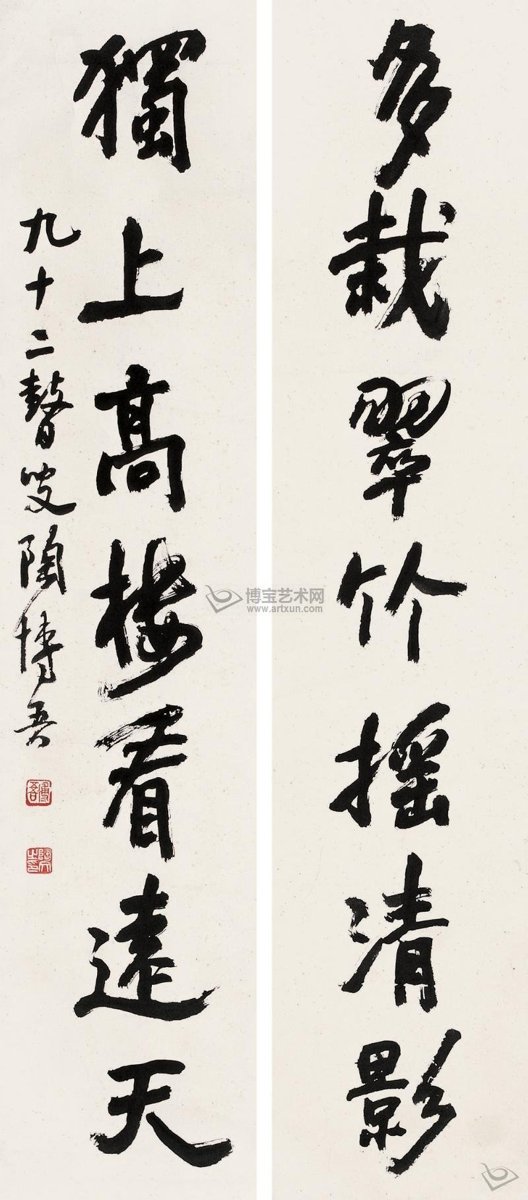 多栽翠竹摇清影
獨上高楼看遠天
九十二瞽叟陶博吾
博宝艺术网
www.artxun.com